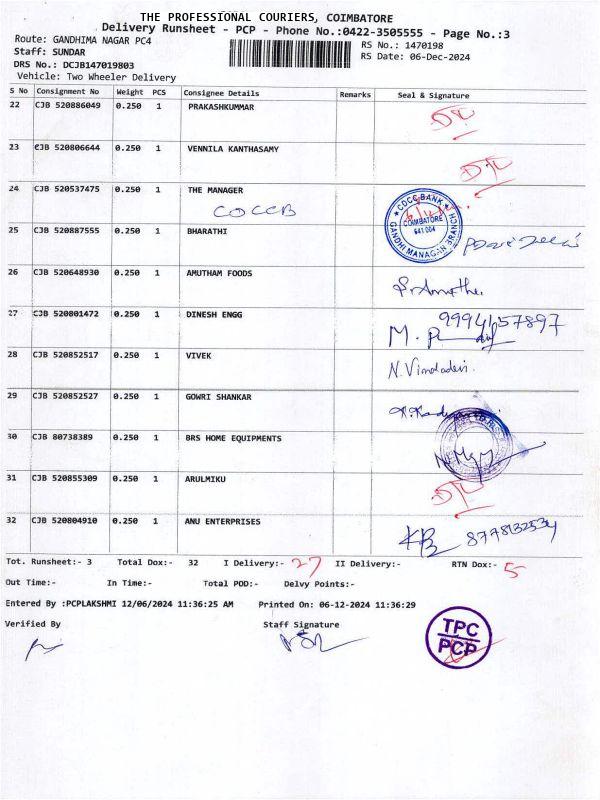 THE PROFESSIONAL COURIERS, COIMBATORE
Delivery Runsheet - PCP - Phone No.:0422-3505555 - Page No.:3
Route: GANDHIMA NAGAR PC4
RS No.: 1470198
Staff: SUNDAR
RS Date: 06-Dec-2024
DRS No.: DCJB147019803
Vehicle: Two Wheeler Delivery
S No Consignment No Weight PCS Consignee Details Remarks Seal & Signature
22 CJB 520886049 0.250 1 PRAKASHKUMMAR
23 CJB 520806644 0.250 1 VENNILA KANTHASAMY
24 CJB 520537475 0.250 1 THE MANAGER
COCCB
CDCC BANK
COIMBATORE
641 004
GANDHI MANAGAR BRANCH
25 CJB 520887555 0.250 1 BHARATHI
26 CJB 520648930 0.250 1 AMUTHAM FOODS
27 CJB 520801472 0.250 1 DINESH ENGG
9994157897
28 CJB 520852517 0.250 1 VIVEK
29 CJB 520852527 0.250 1 GOWRI SHANKAR
30 CJB 80738389 0.250 1 BRS HOME EQUIPMENTS
31 CJB 520855309 0.250 1 ARULMIKU
32 CJB 520804910 0.250 1 ANU ENTERPRISES
Tot. Runsheet:- 3 Total Dox:- 32 I Delivery:- 27 II Delivery:- RTN Dox:- 5
Out Time:- In Time:- Total POD:- Delvy Points:-
Entered By :PCPLAKSHMI 12/06/2024 11:36:25 AM Printed On: 06-12-2024 11:36:29
Verified By Staff Signature
TPC
PCP